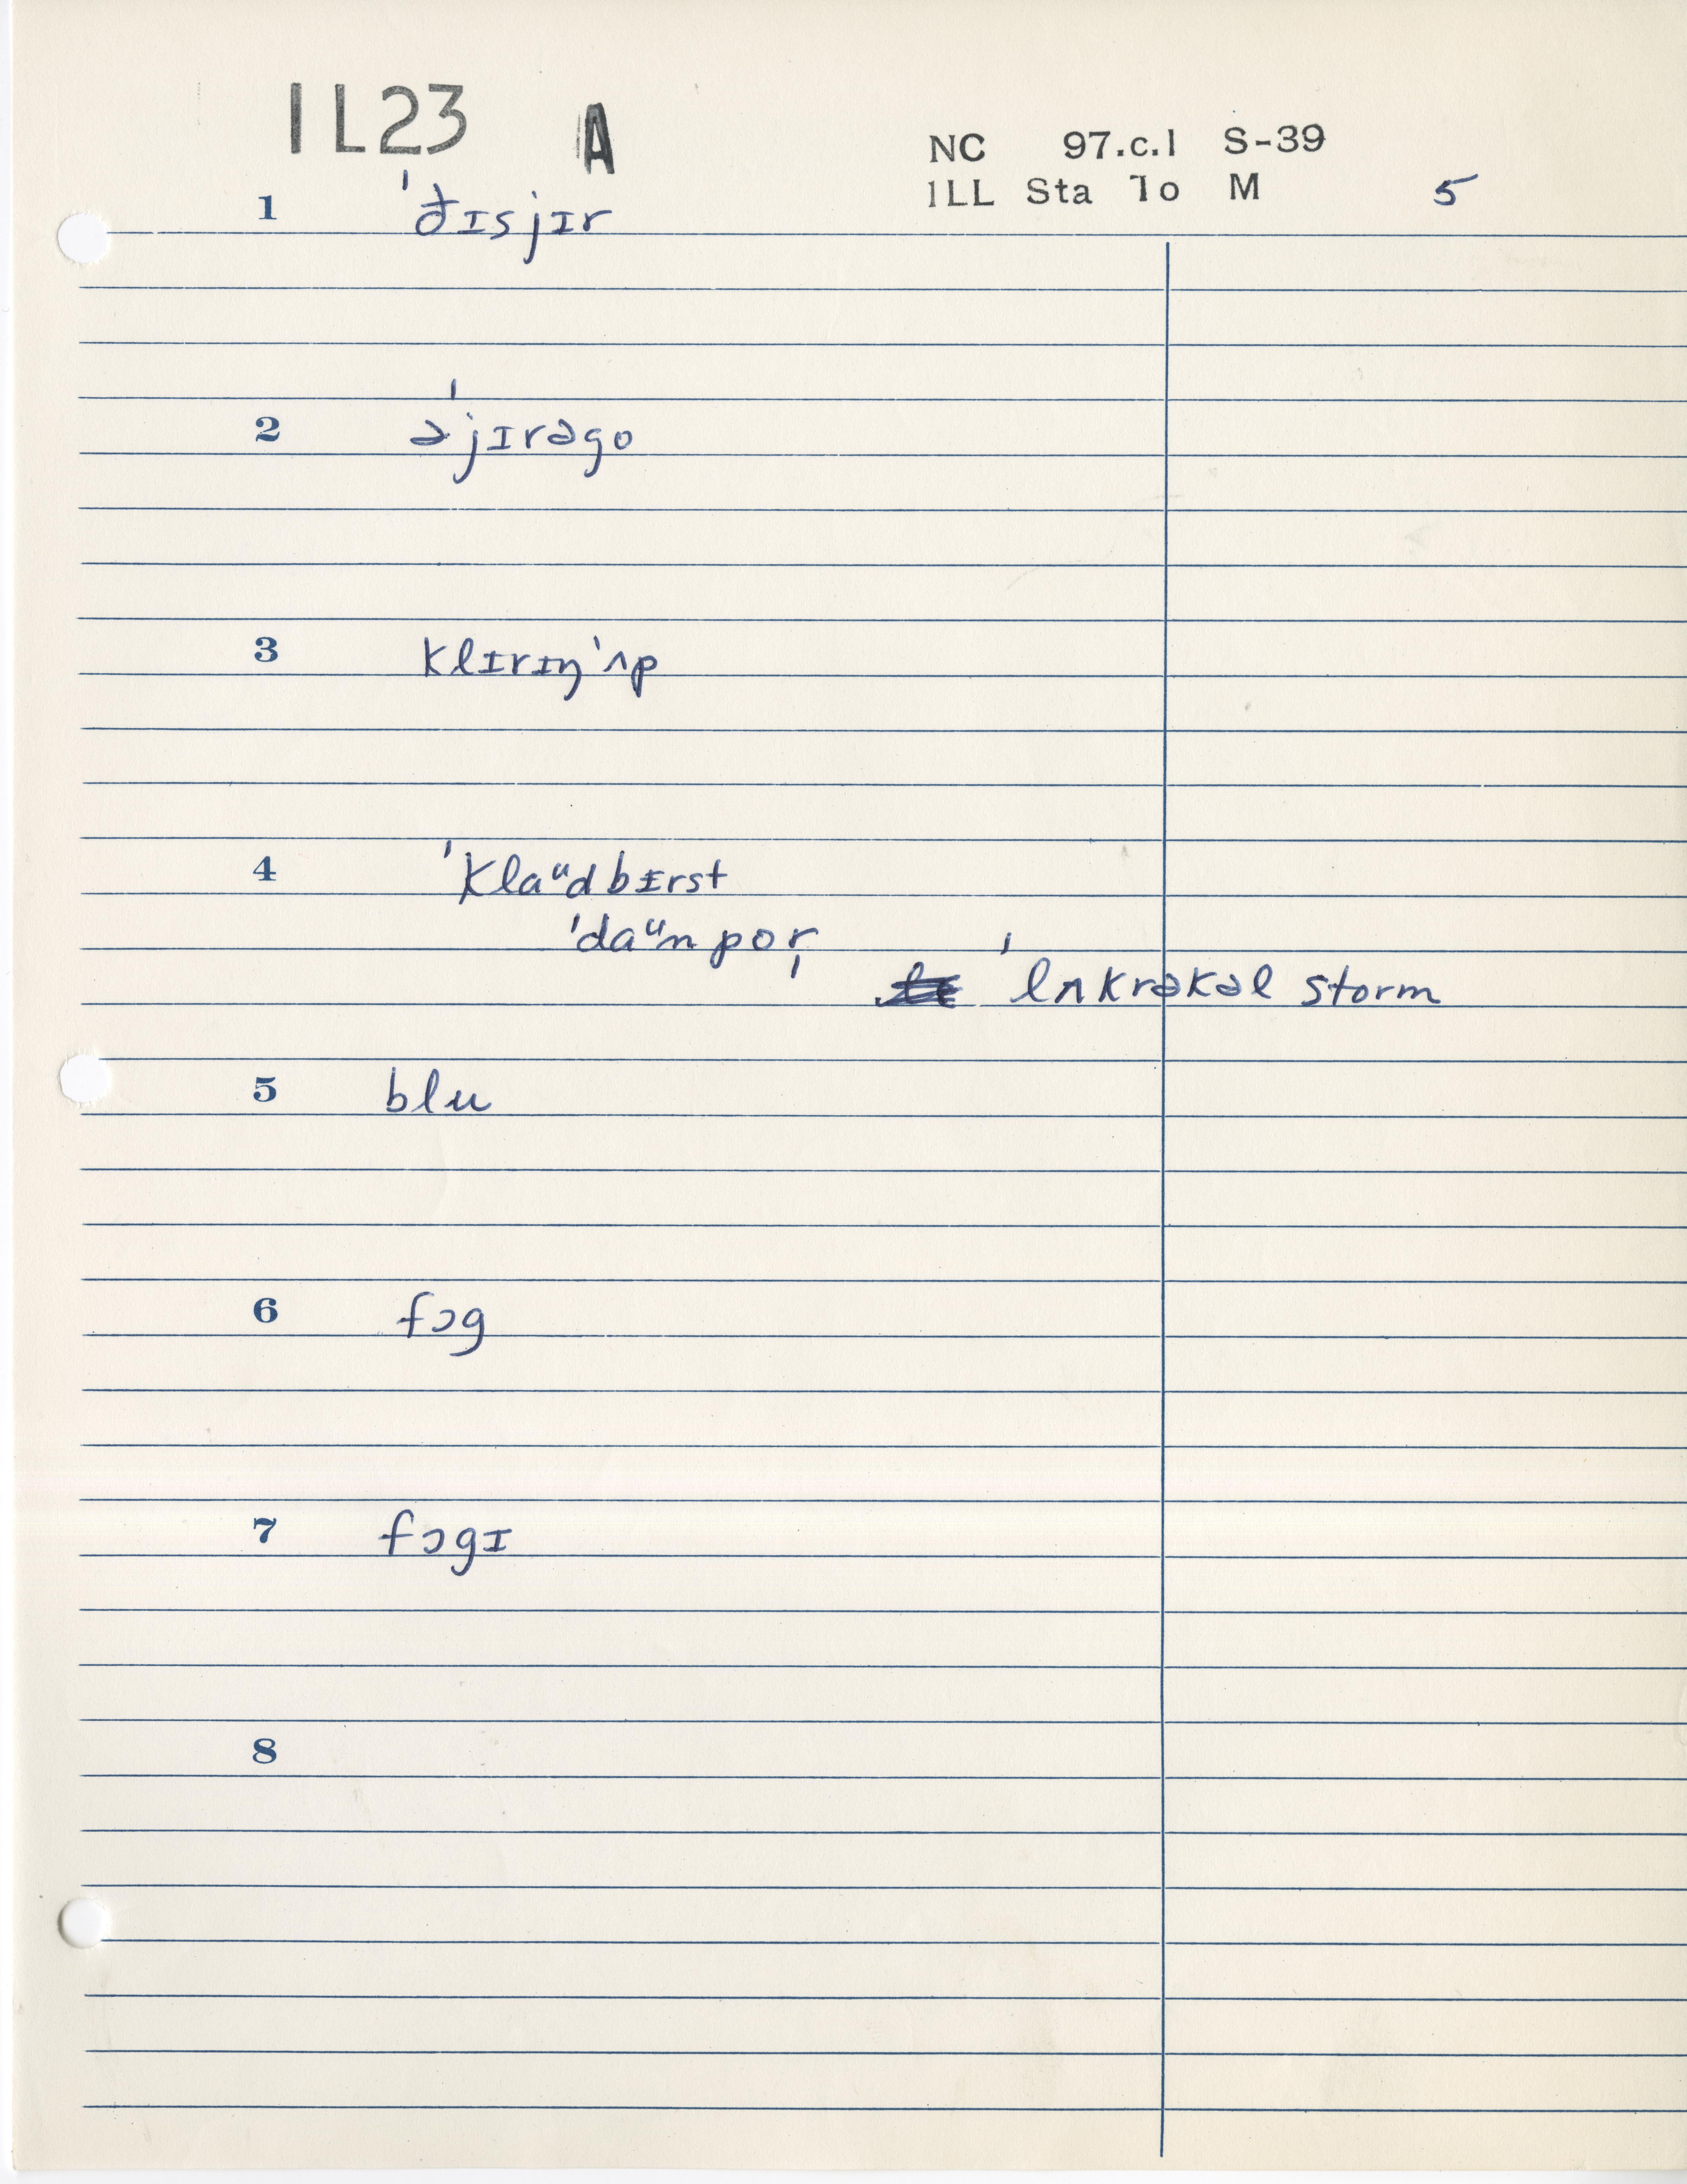 IL23 A
NC 97.c.1 S-39
ILL Sta To M 5
1 'ðɪsjɪr
2 ə'jɪrəgo
3 klɪrɪŋ'ʌp
4 'klaᵘdbɪrst
'daᵘnpor̩
'lʌkrəkəl storm
5 blu
6 fɔg
7 fɔgɪ
8